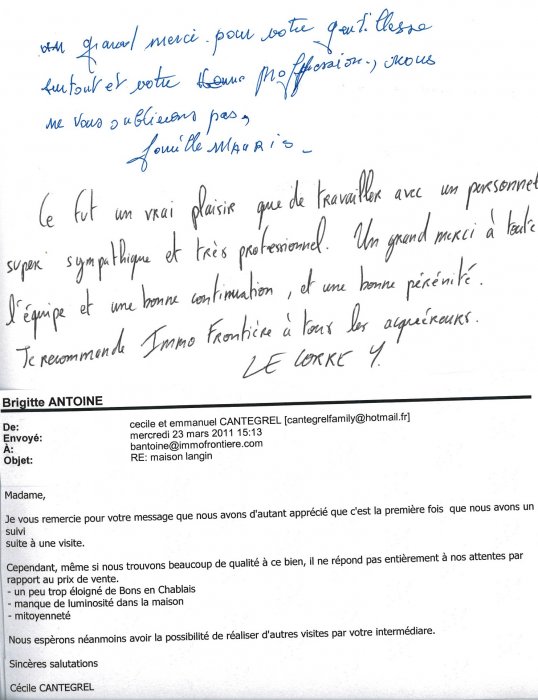 un grand merci pour votre gentillesse
surtout et votre Proffession, nous
ne vous oublierons pas,
famille MAURIS -
Ce fut un vrai plaisir que de travailler avec un personnel
super sympathique et très professionnel. Un grand merci à toute
l'équipe et une bonne continuation, et une bonne pérénité.
Je recommande Immo Frontière à tous les acquéreurs.
LE CORRE Y.
Brigitte ANTOINE
De: cecile et emmanuel CANTEGREL [cantegrelfamily@hotmail.fr]
Envoyé: mercredi 23 mars 2011 15:13
À: bantoine@immofrontiere.com
Objet: RE: maison langin
Madame,
Je vous remercie pour votre message que nous avons d'autant apprécié que c'est la première fois que nous avons un
suivi
suite à une visite.
Cependant, même si nous trouvons beaucoup de qualité à ce bien, il ne répond pas entièrement à nos attentes par
rapport au prix de vente.
- un peu trop éloigné de Bons en Chablais
- manque de luminosité dans la maison
- mitoyenneté
Nous espèrons néanmoins avoir la possibilité de réaliser d'autres visites par votre intermédiare.
Sincères salutations
Cécile CANTEGREL